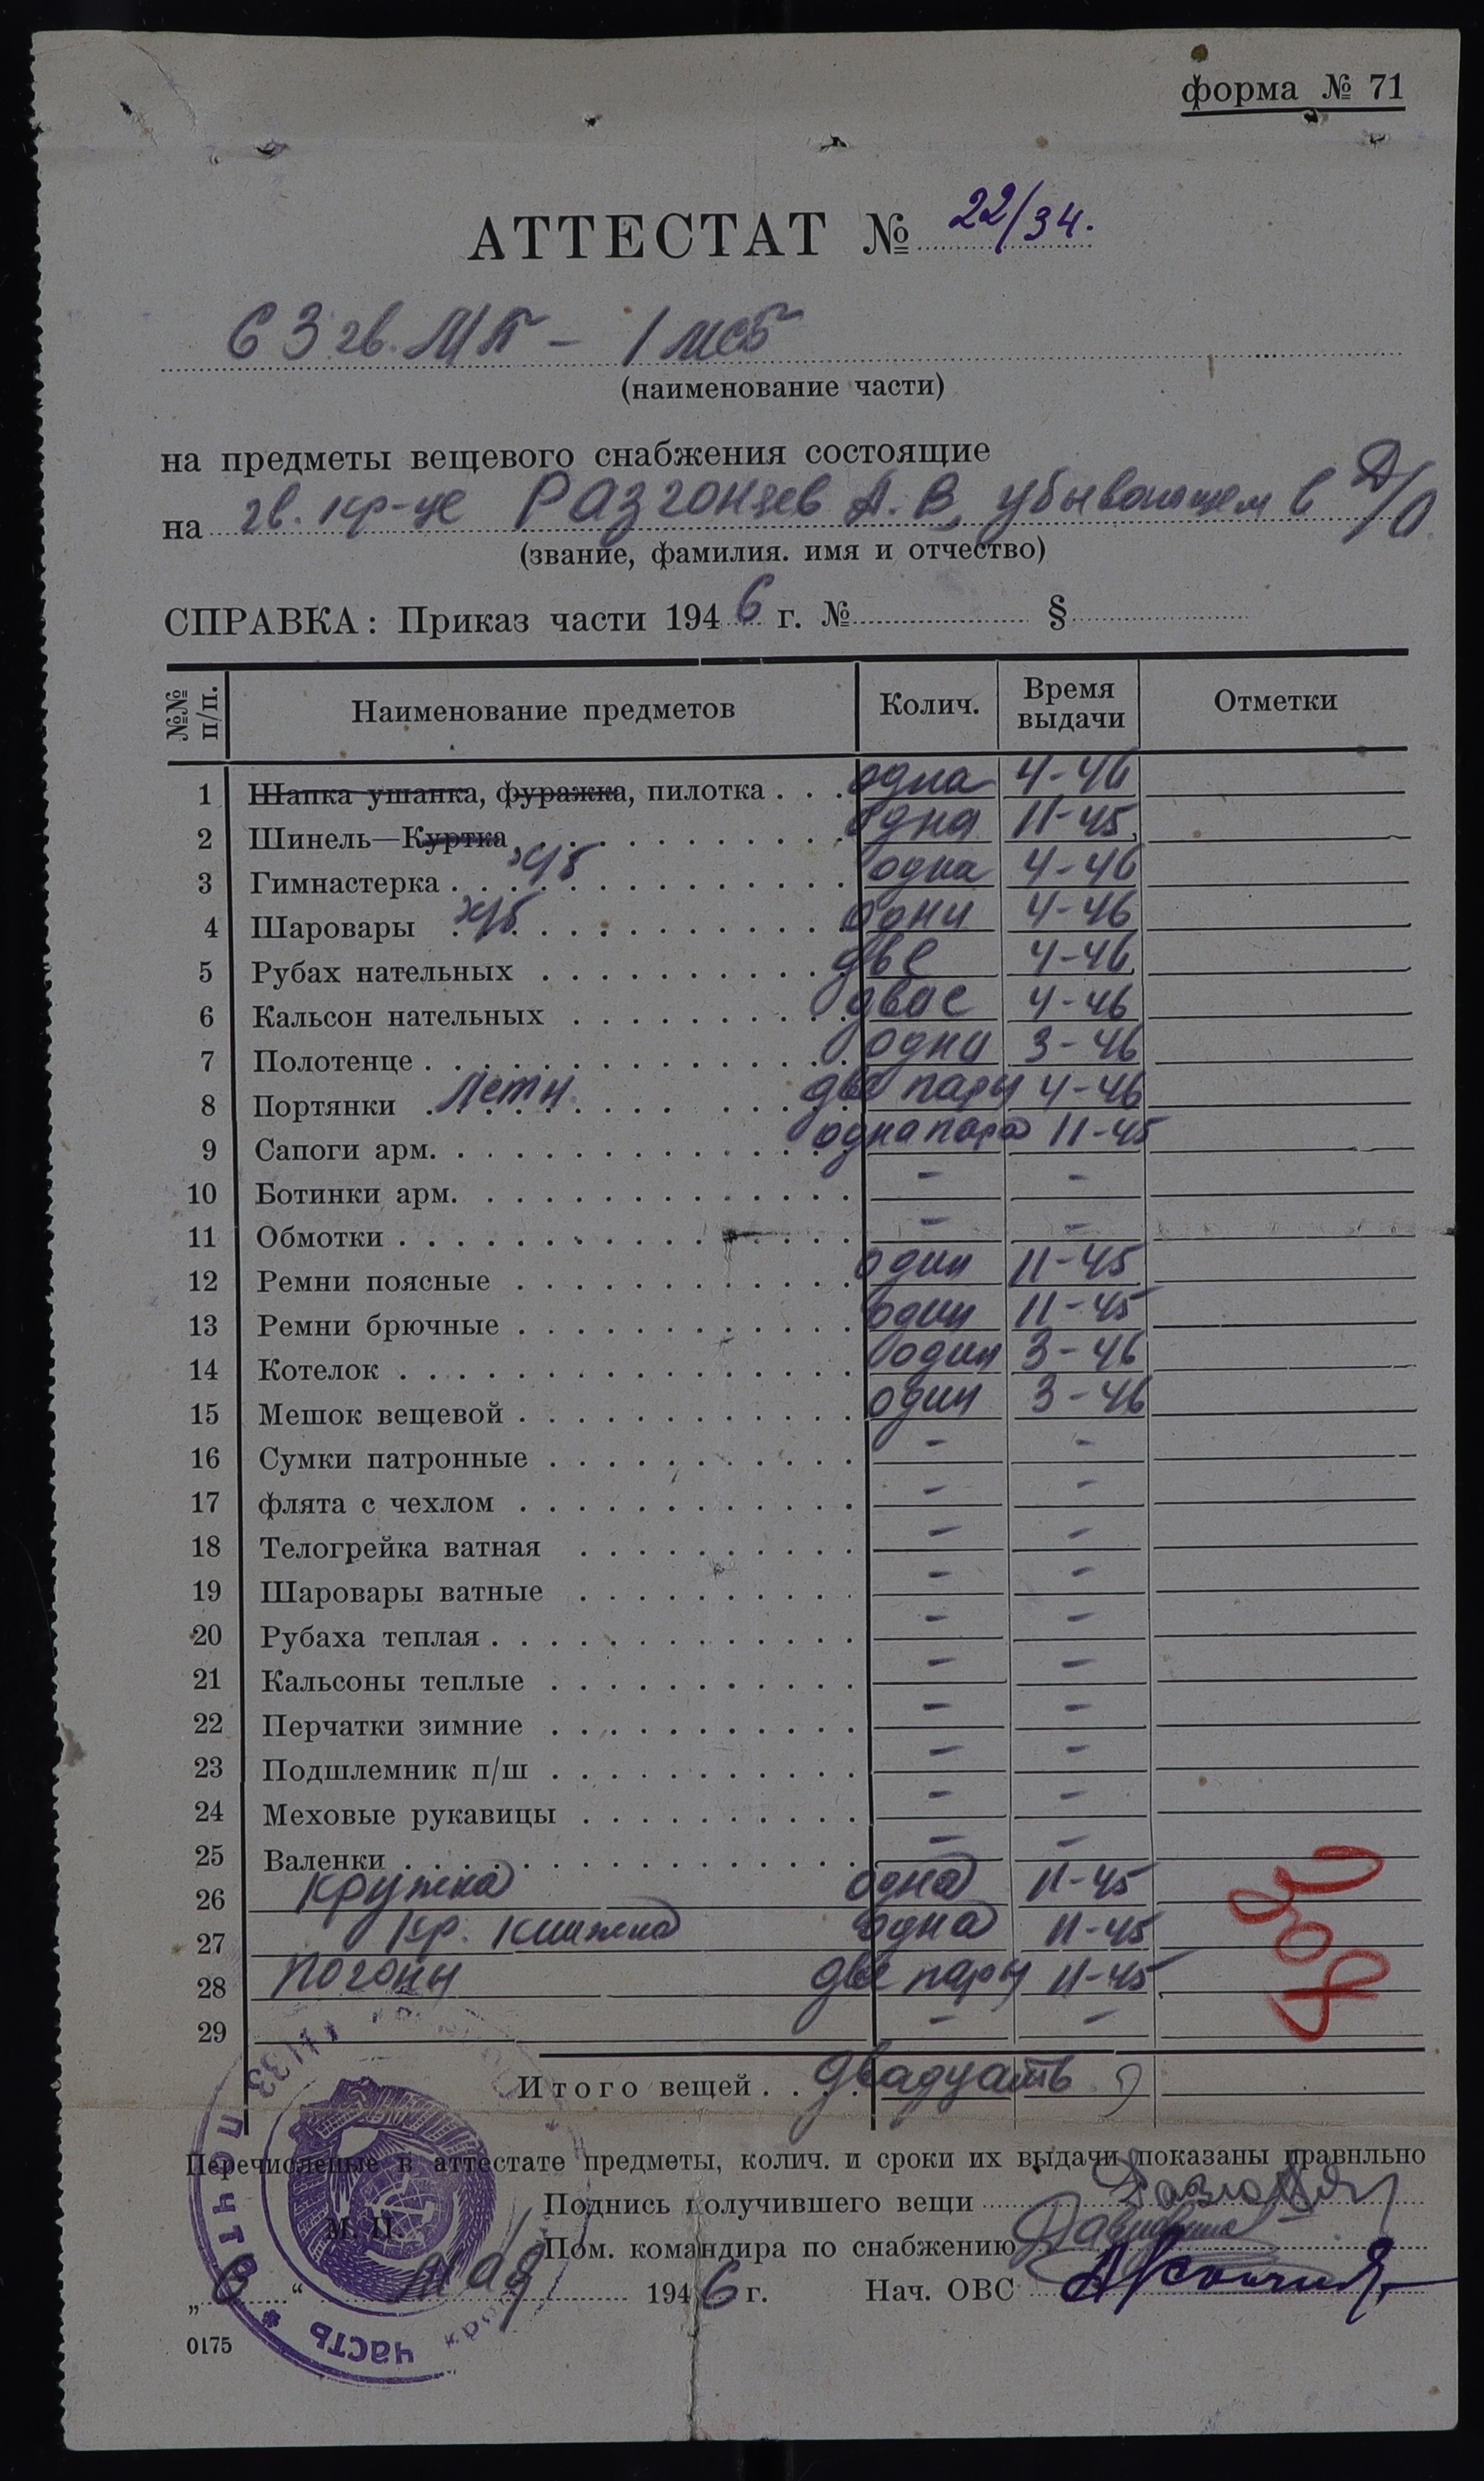 форма № 71
АТТЕСТАТ № 22/34.
63 гв. МП - 1 мсб
(наименование части)
на предметы вещевого снабжения состоящие
на гв. кр-це Разгонцев А. В. убывающем в Д/О.
(звание, фамилия. имя и отчество)
СПРАВКА: Приказ части 1946 г. № §
№№ п/п. Наименование предметов Колич. Время выдачи Отметки
1 Шапка ушанка, фуражка, пилотка одна 4-46
2 Шинель—Куртка одна 11-45
3 Гимнастерка х/б одна 4-46
4 Шаровары х/б одни 4-46
5 Рубах нательных две 4-46
6 Кальсон нательных двае 4-46
7 Полотенце одни 3-46
8 Портянки летн. две пары 4-46
9 Сапоги арм. одна пара 11-45
10 Ботинки арм. - -
11 Обмотки - -
12 Ремни поясные один 11-45
13 Ремни брючные один 11-45
14 Котелок один 3-46
15 Мешок вещевой один 3-46
16 Сумки патронные - -
17 флята с чехлом - -
18 Телогрейка ватная - -
19 Шаровары ватные - -
20 Рубаха теплая - -
21 Кальсоны теплые - -
22 Перчатки зимние - -
23 Подшлемник п/ш - -
24 Меховые рукавицы - -
25 Валенки - -
26 Кружка одна 11-45
27 Кр. книжка одна 11-45
28 Погоны две пары 11-45
29 - -
Итого вещей двадцать
Перечисленые в аттестате предметы, колич. и сроки их выдачи показаны правильно
Подпись получившего вещи
М. П. Пом. командира по снабжению
„6“ мая 1946 г. Нач. ОВС
0175
часть